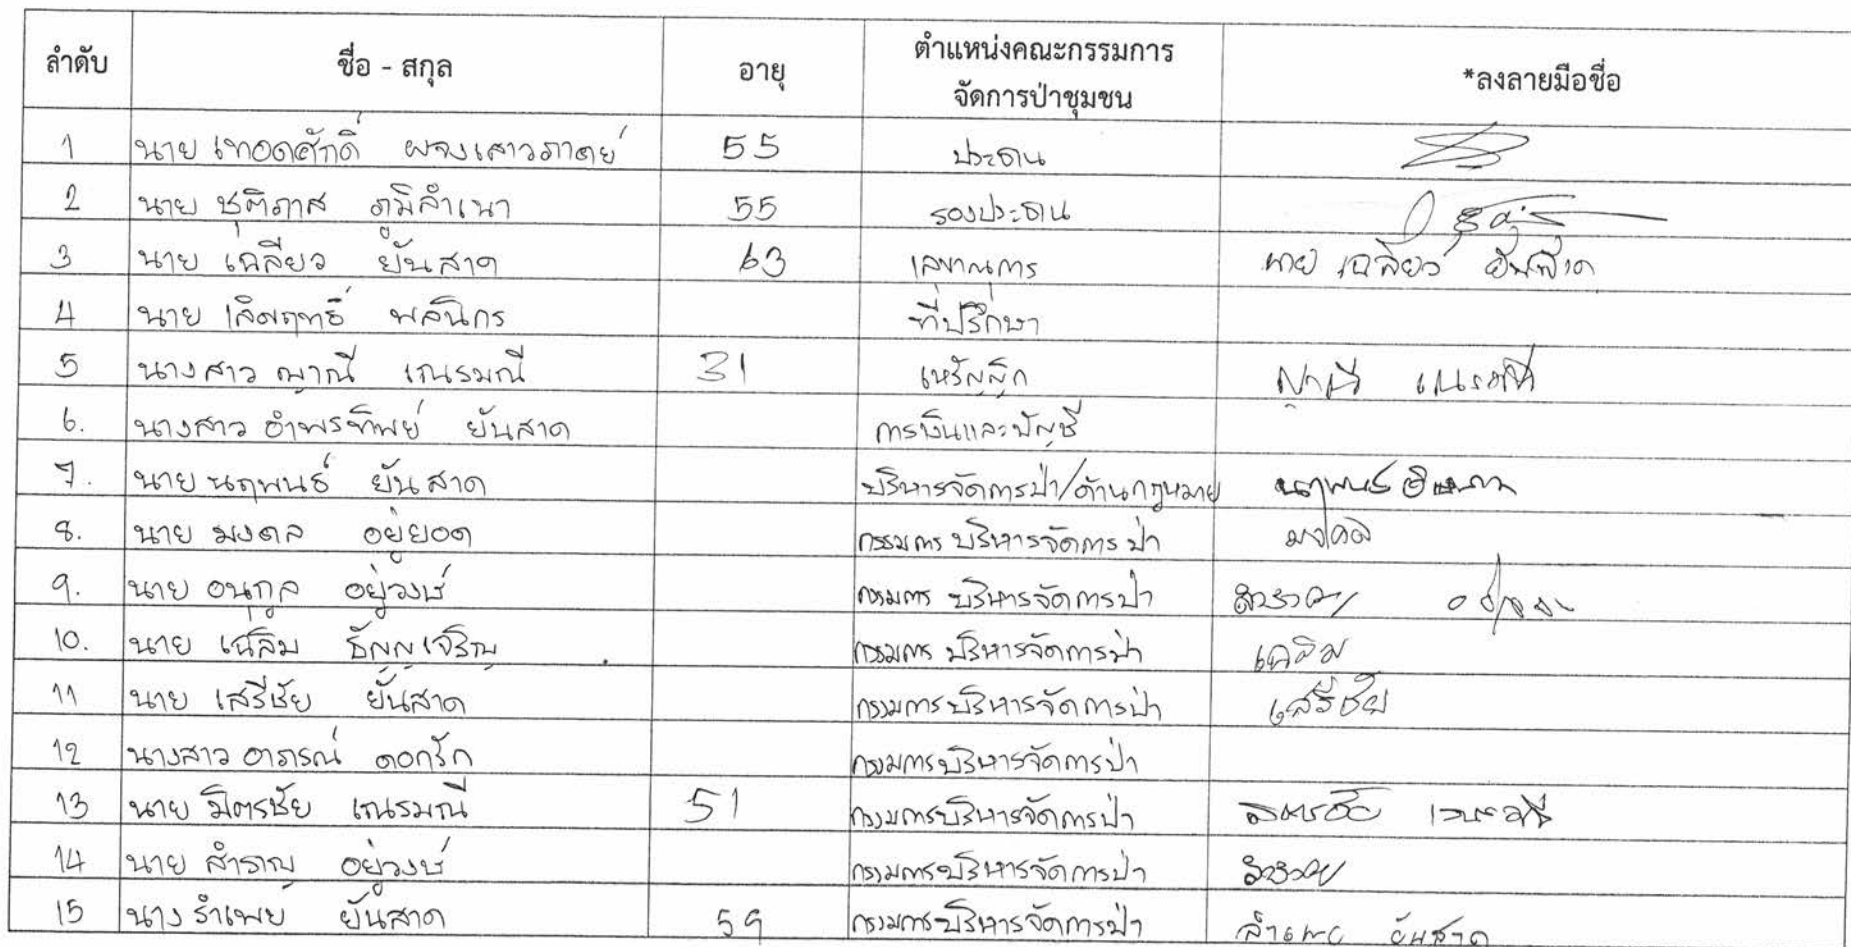 ลำดับ ชื่อ - สกุล อายุ ตำแหน่งคณะกรรมการ *ลงลายมือชื่อ
จัดการป่าชุมชน
1 นาย เทอดศักดิ์ ผจงเสาวภาคย์ 55 ประธาน
2 นาย ชุติภาส ภูมิลำเนา 55 รองประธาน
3 นาย เฉลียว ยันสาด 63 เลขานุการ นาย เฉลียว ยันสาด
4 นาย เลิศฤทธิ์ พลนิกร ที่ปรึกษา
5 นางสาว ญาณี เณรมณี 31 เหรัญญิก ญาณี เณรมณี
6. นางสาว อำพรทิพย์ ยันสาด การเงินและบัญชี
7. นาย นฤพนธ์ ยันสาด บริหารจัดการป่า/ด้านกฎหมาย นฤพนธ์
8. นาย มงคล อยู่ยอด กรรมการ บริหารจัดการ ป่า มงคล
9. นาย อนุกูล อยู่วงษ์ กรรมการ บริหารจัดการป่า
10. นาย เฉลิม ธัญญเจริญ กรรมการ บริหารจัดการป่า เฉลิม
11 นาย เสรีชัย ยันสาด กรรมการ บริหารจัดการป่า เสรีชัย
12 นางสาว อาภรณ์ ดอกรัก กรรมการบริหารจัดการป่า
13 นาย มิตรชัย เณรมณี 51 กรรมการบริหารจัดการป่า มิตรชัย เณรมณี
14 นาย สำราญ อยู่วงษ์ กรรมการบริหารจัดการป่า
15 นาง รำเพย ยันสาด 59 กรรมการบริหารจัดการป่า ยันสาด